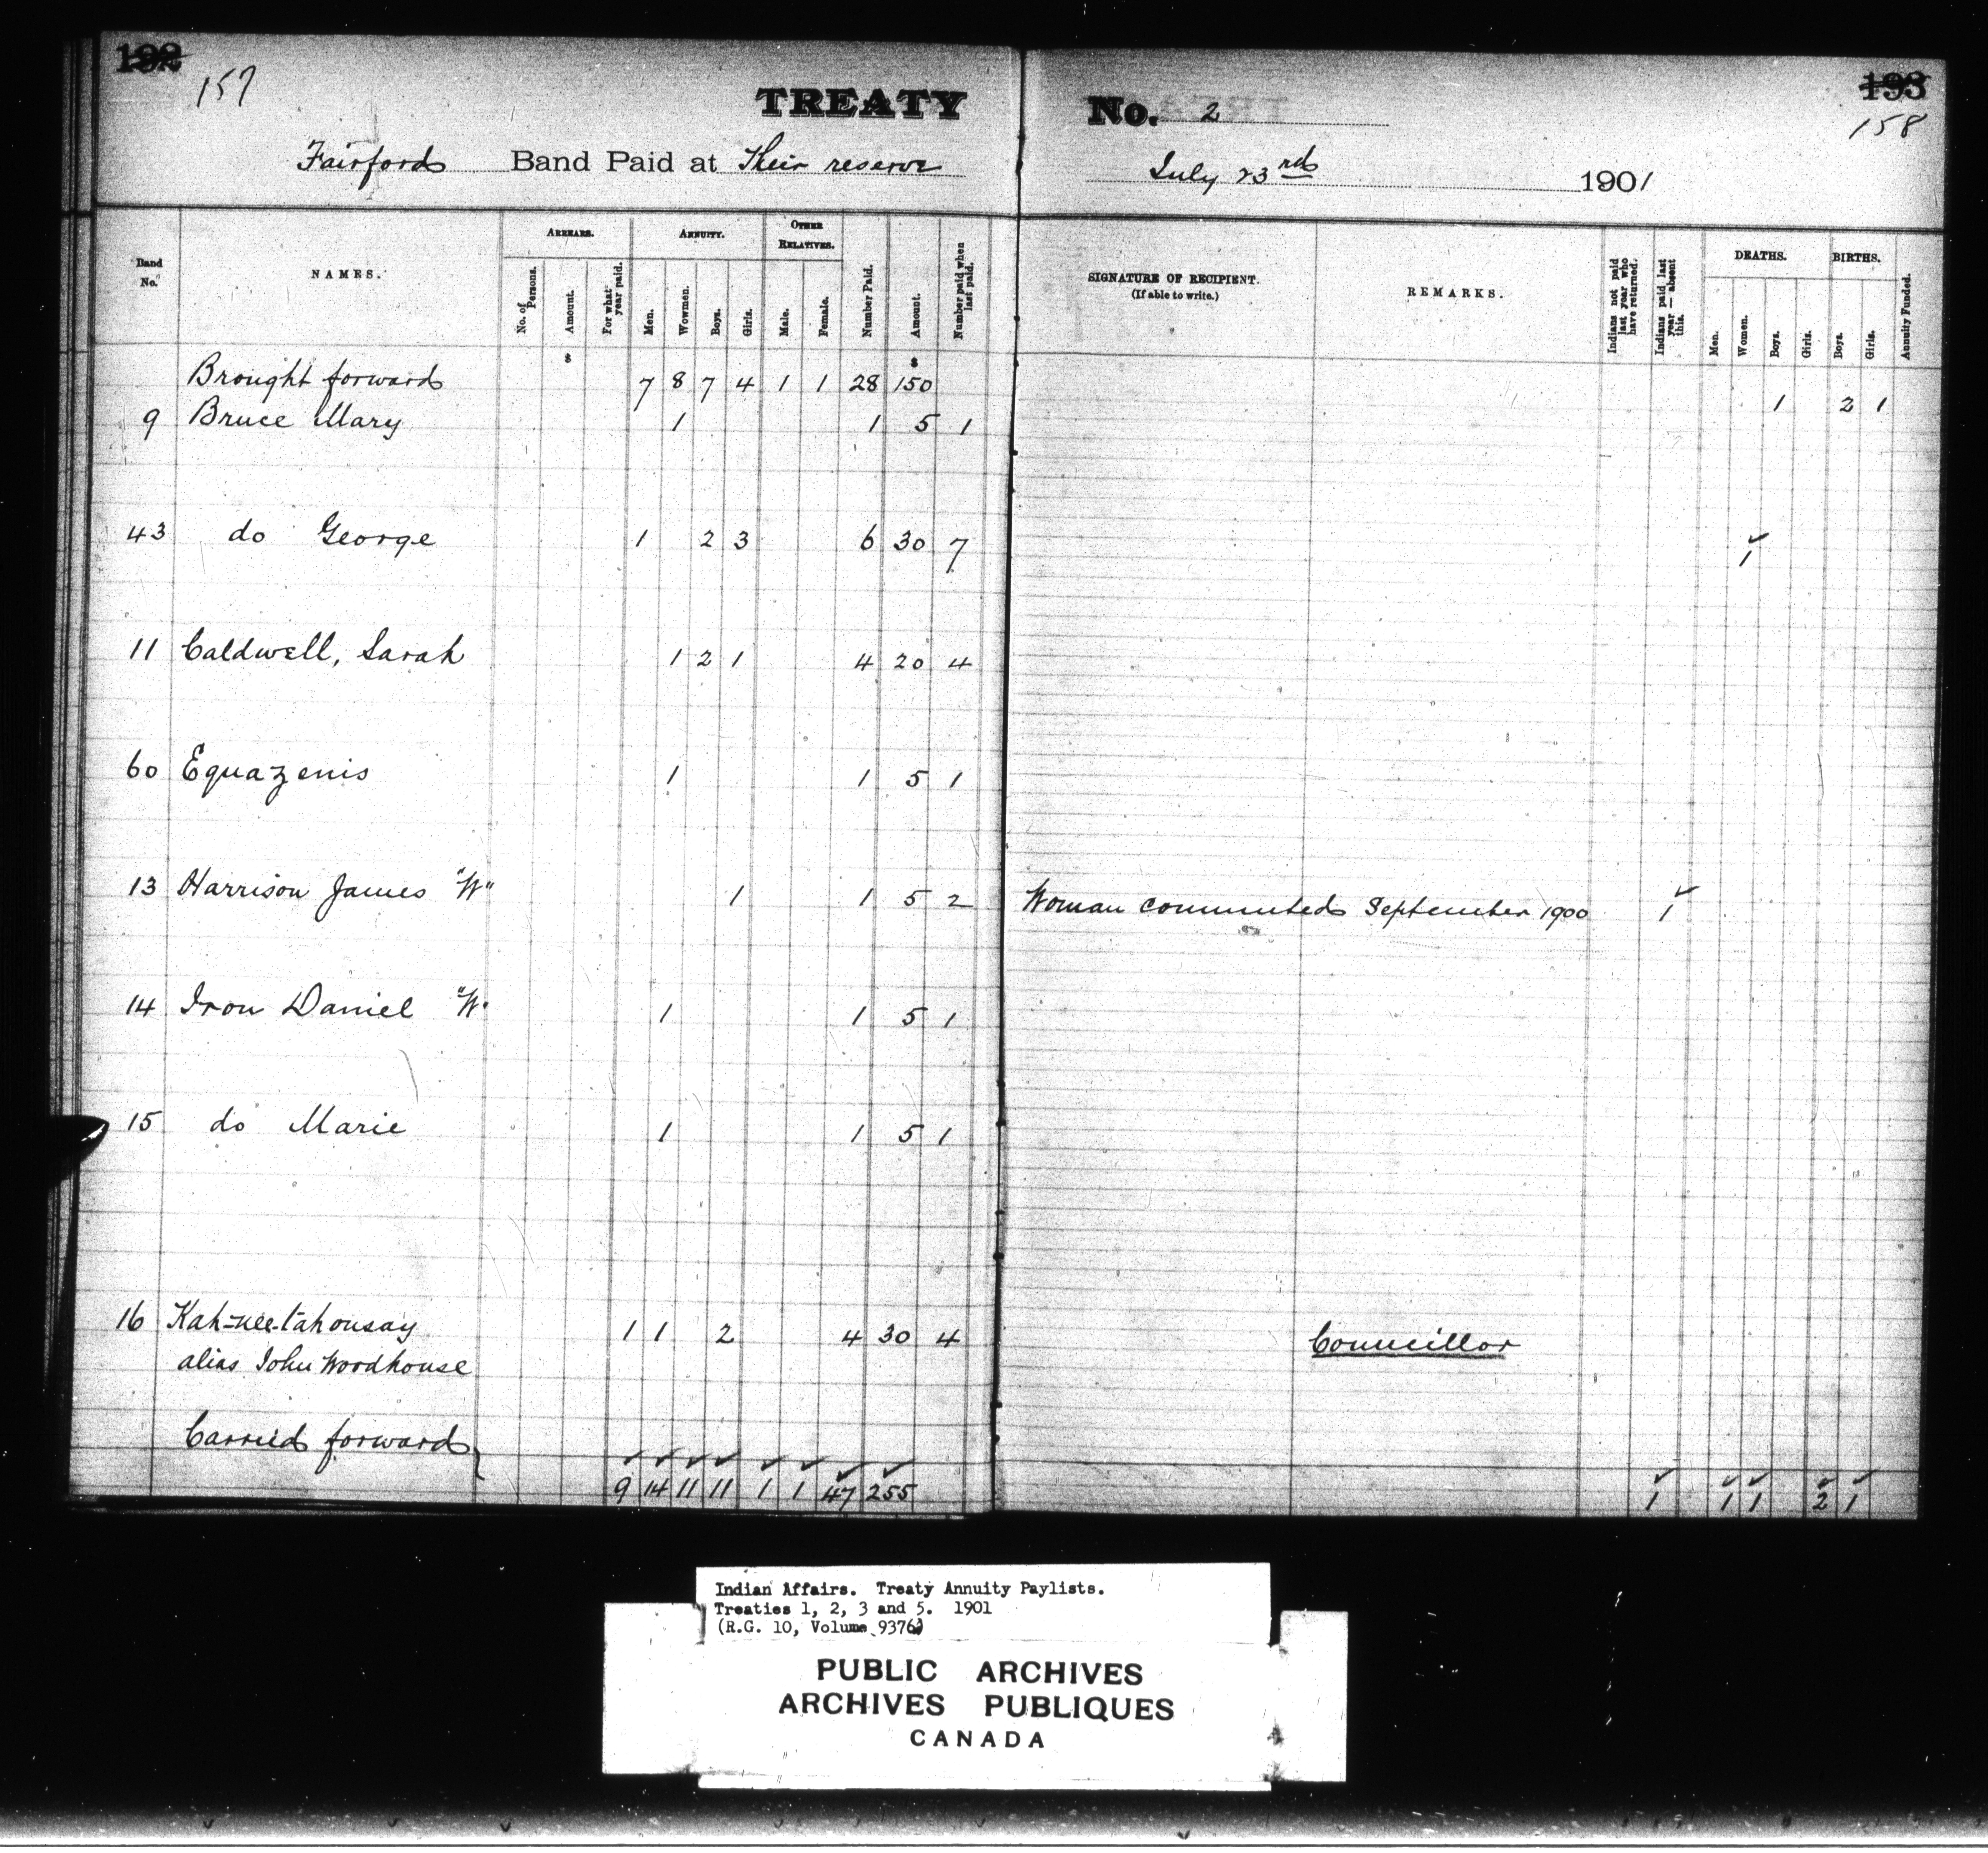 192 193
157 158
TREATY No. 2
Fairford Band Paid at Their reserve July 23rd 1901
Band No. NAMES. ARREARS. No. of Persons. Amount. For what year paid. ANNUITY. Men. Women. Boys. Girls. OTHER RELATIVES. Male. Female. Number Paid. Amount. Number paid when last paid. SIGNATURE OF RECIPIENT. (If able to write.) REMARKS. Indians not paid last year who have returned. Indians paid last year — absent this. DEATHS. Men. Women. Boys. Girls. BIRTHS. Boys. Girls. Annuity Funded.
$ $
Brought forward 7 8 7 4 1 1 28 150 1 2 1
9 Bruce Mary 1 1 5 1
43 do George 1 2 3 6 30 7 1
11 Caldwell, Sarah 1 2 1 4 20 4
60 Equazenis 1 1 5 1
13 Harrison James "W" 1 1 5 2 Woman commuted September 1900 1
14 Iron Daniel "W" 1 1 5 1
15 do Marie 1 1 5 1
16 Kah-nee-tahonsay 1 1 2 4 30 4 Councillor
alias John Woodhouse
Carried forward
9 14 11 11 1 1 47 255 1 1 1 2 1
Indian Affairs. Treaty Annuity Paylists.
Treaties 1, 2, 3 and 5. 1901
(R.G. 10, Volume 9376)
PUBLIC ARCHIVES
ARCHIVES PUBLIQUES
CANADA